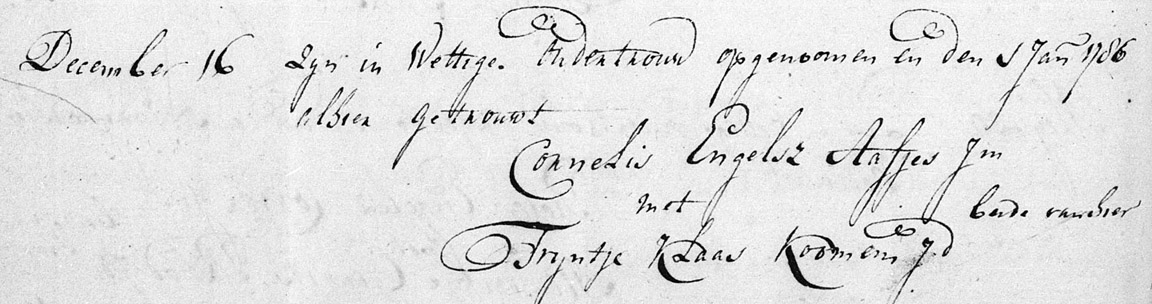 December 16 Zyn in Wettige Ondertrouw opgenoomen en den 1 Jan 1786
alhier getrouwt
Cornelis Engelsz Aafjes Jm
met
beide van hier
Tryntje Klaas Koomen Jd